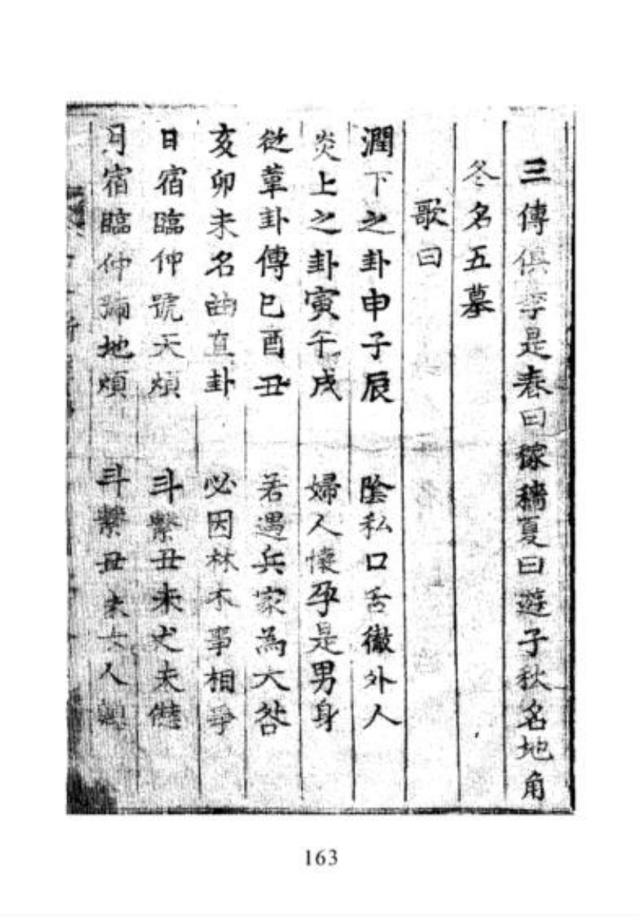 三傳俱季是春曰稼穡夏曰遊子秋名地角
冬名五墓
歌曰
潤下之卦申子辰 陰私口舌徹外人
炎上之卦寅午戌 婦人懷孕是男身
從革卦傳巳酉丑 若遇兵家為大咎
亥卯未名曲直卦 必因林木事相爭
日宿臨仲號天煩 斗繫丑未丈夫
月宿臨仲號地煩 斗繫丑未女人
163